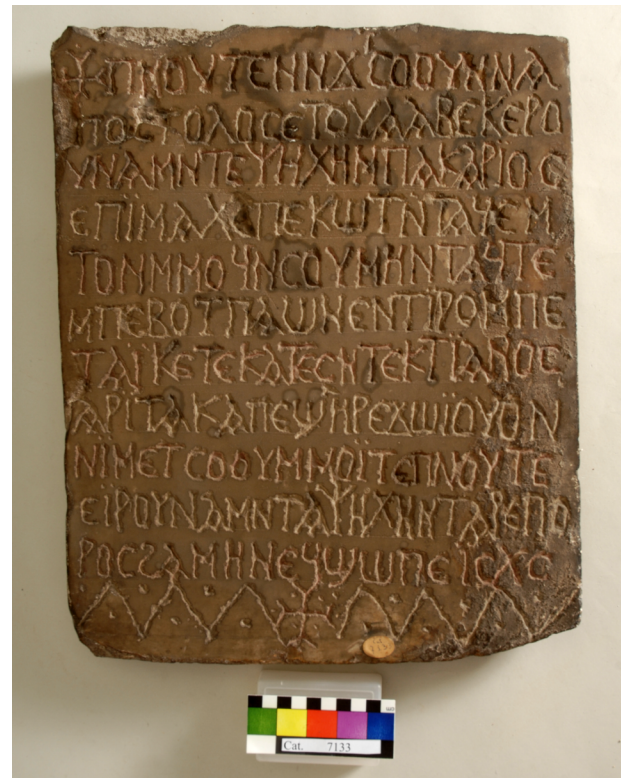 ⳨ⲡⲛⲟⲩⲧⲉⲛⲛϫⲥⲟⲟⲩⲛⲛⲁ
ⲡⲟⲥⲧⲟⲗⲟⲥⲉⲧⲟⲩⲁⲁⲃⲉⲕⲉⲣⲟ
ⲩⲛⲁⲙⲛⲧⲉⲯⲏⲭⲏⲙⲡⲁⲕⲁⲣⲓⲟⲥ
ⲉⲡⲓⲙⲁⲭⲉⲡⲉⲕⲱⲧⲛⲧⲁϥⲉⲙ
ⲧⲟⲛⲙⲙⲟϥⲛⲥⲟⲩⲙⲏⲛⲧⲁϥⲧⲉ
ⲙⲡⲉⲃⲟⲧⲡⲁⲱⲛⲉⲛⲧⲓⲣⲟⲙⲡⲉ
ⲧⲁⲓ̈ⲕⲉⲧⲉⲕⲁⲧⲉⲥⲛⲧⲉⲕⲧⲓⲁⲛⲟⲥ
ⲁⲣⲓ̈ⲧⲁⲕⲁⲡⲉⲡϣⲏⲣⲉϫⲱⲓ̈ⲟⲩⲟⲛ
ⲛⲓⲙⲉⲧⲥⲟⲟⲩⲙⲙⲟⲓ̈ⲧⲉⲡⲛⲟⲩⲧⲉ
ⲉⲓ̈ⲣⲟⲩⲛⲁⲙⲛⲧⲁⲯⲏⲭⲏⲛⲧⲁⲣⲉⲡⲓⲟ
ⲣⲟⲥϩⲁⲙⲏⲛⲉϥϣⲱⲡⲉⲓⲥⲭⲥ
Cat. 7133